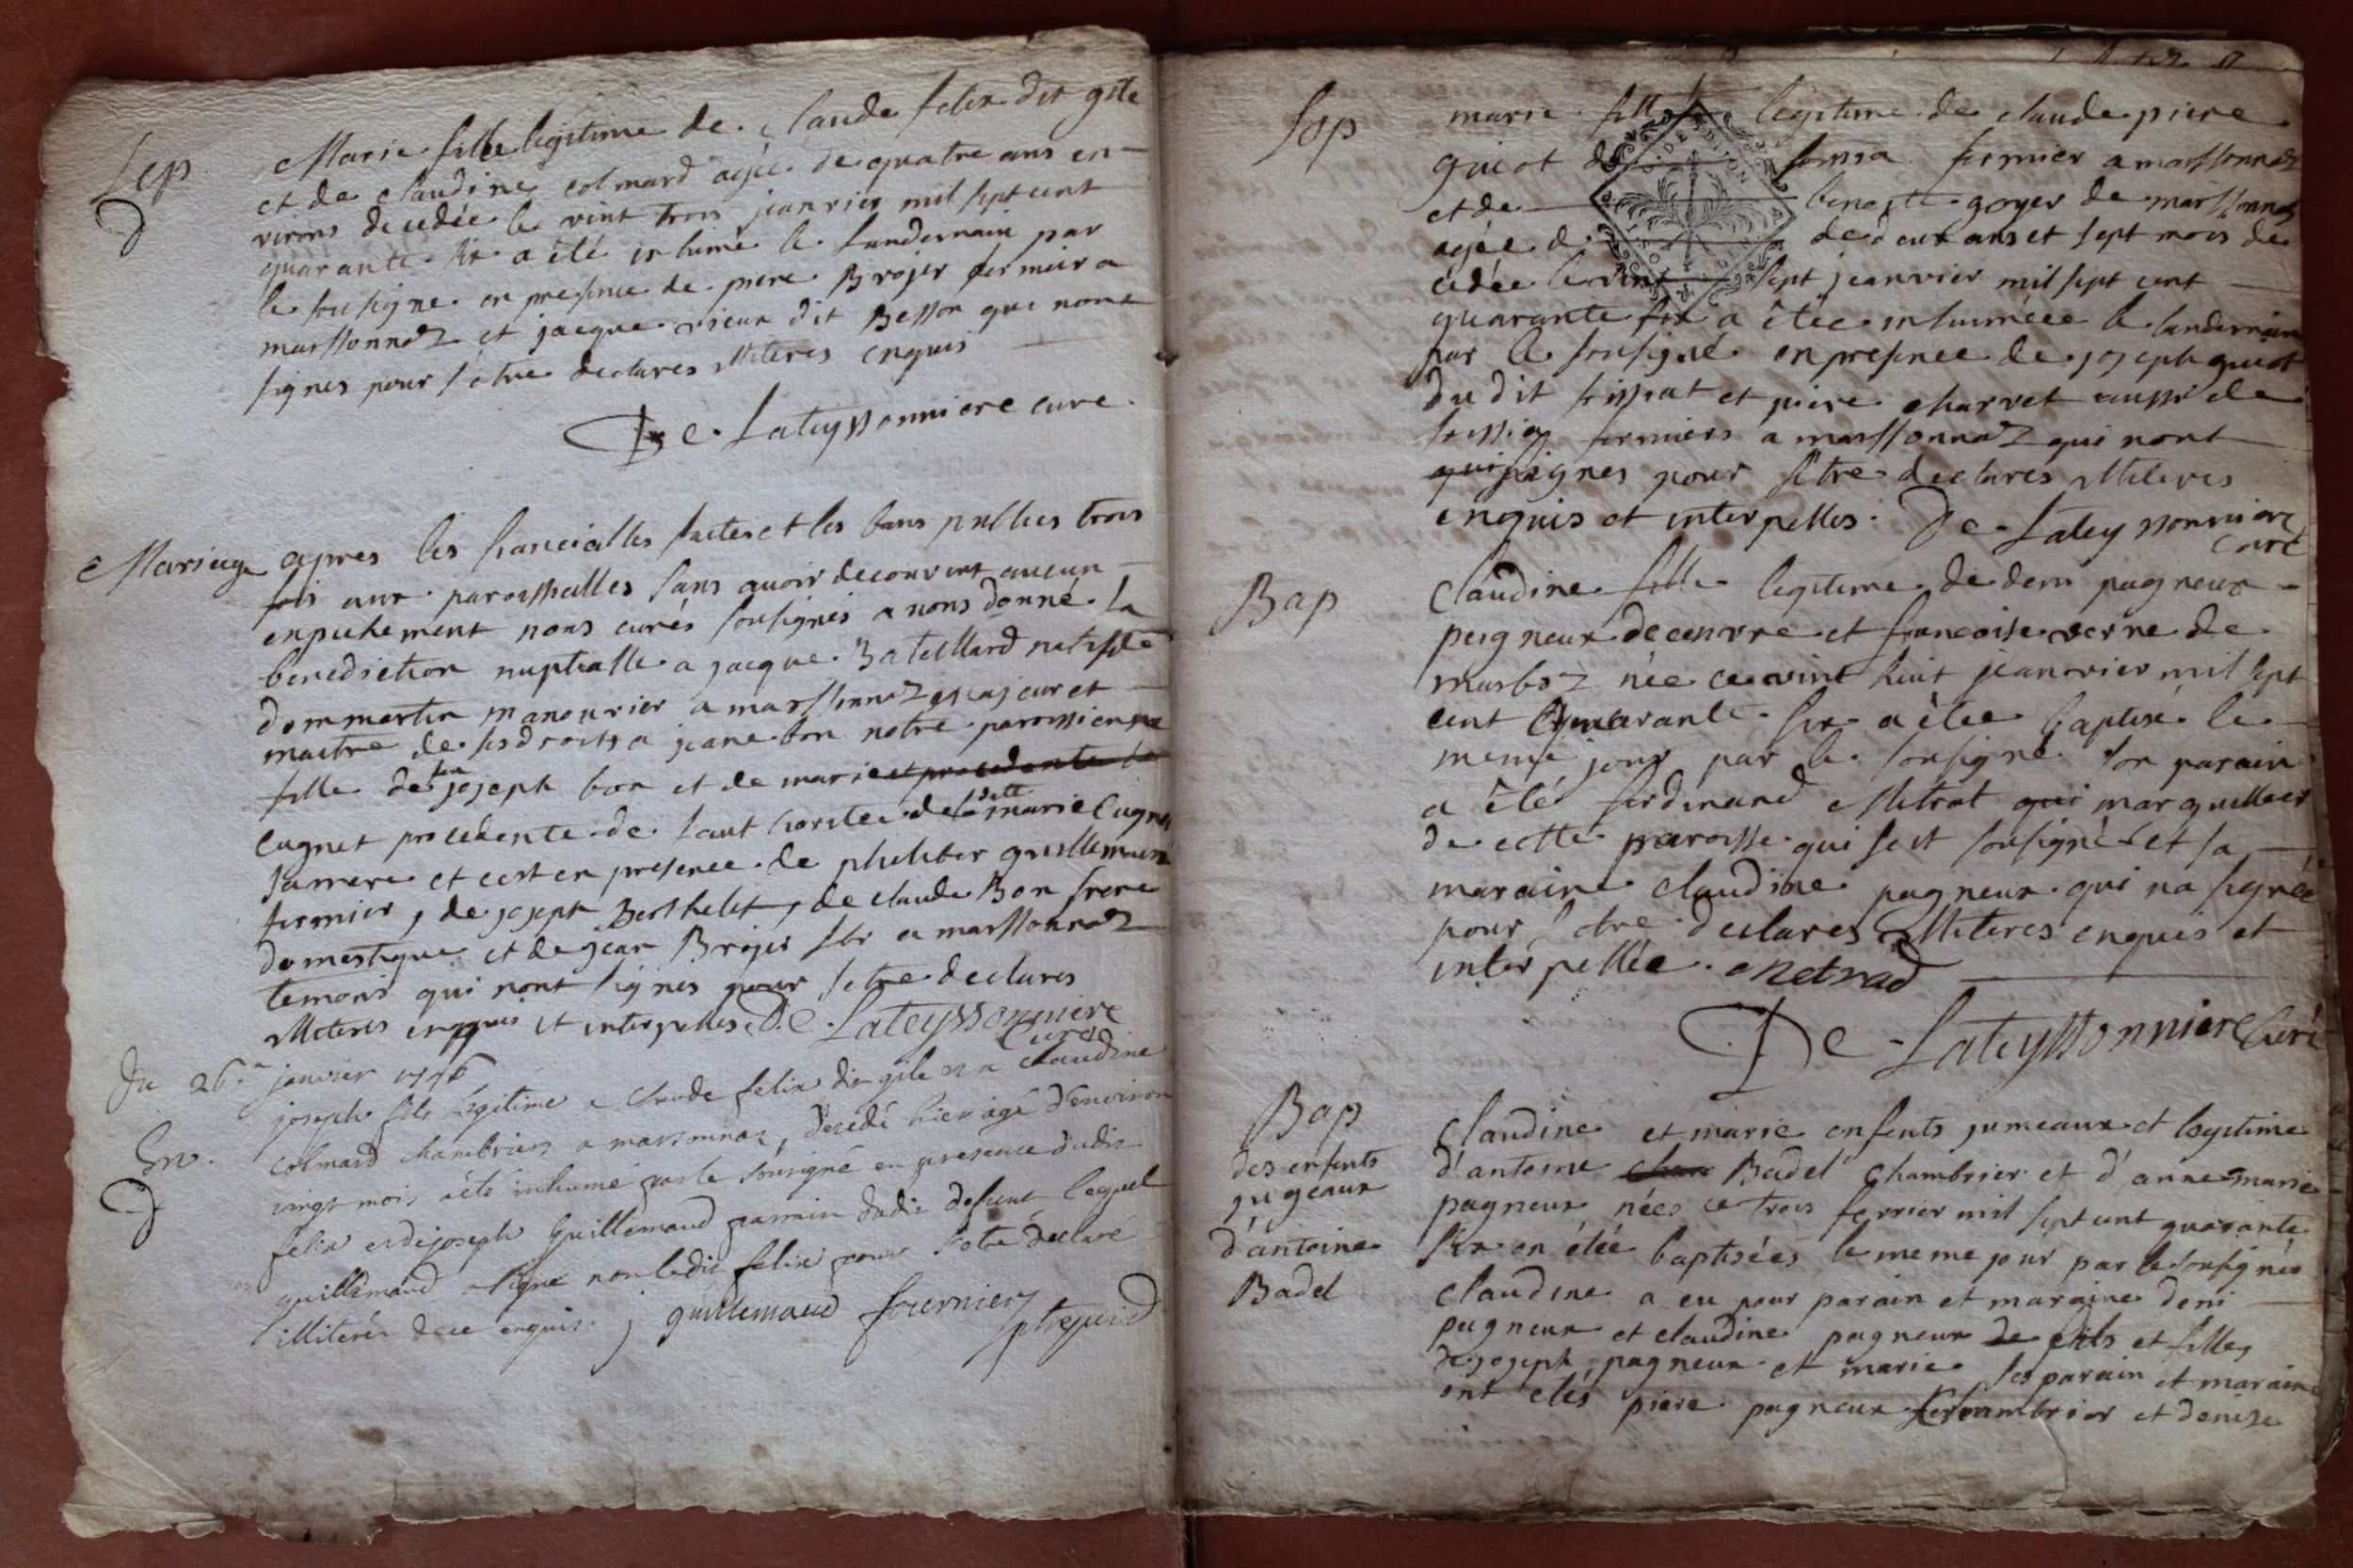 Sep
Marie fille legitime de Claude felix dit gile
et de claudine colmard agée de quatre ans en-
virons decedée le vint trois jeanvier mil sept cent
quarante six a été inhumé le landemain par
le sousigne en presence de piere Brojer fermier a
marssonnaz et jacque vieux dit Besson qui nont
signes pour s'être declares illiteres enquis
De Lateyssonniere cure
Mariage
apres les fiancialles faites et les bans publies trois
fois aux paroissialles sans avoir decouvert aucun
enpechement nous curés sousignés a nous donné la
benediction nuptialle a jacque Bateillard natif de
dommartin manouvrier a marssonnaz majeur et
maitre de ses droits a jeane bon notre paroissienne
fille de feu joseph bon et de marie et procedante de
Cugnet procedente de l'authorite de la ditte marie Cugnet
sa mere et cest en presence de philiber guillemaud
fermier, de joseph Berthelet, de claude Bon frere
domestique et de jean Brojer fer a marssonnaz
temoins qui nont signes pour setre declares
illiteres enquis et interpelles. De Lateyssonniere
Curé
Du 26e janvier 1746
joseph fils legitime a Claude felix dit gile et a Claudine
Colmard chambriers a marsonnaz, decedé hier agé d'environ
vingt mois a été inhumé par le sousigné en presence dudit
felix et de joseph Guillemaud parrain dudit defunt lequel
guillemaud a signé non ledit felix pour s'etre declaré
illiteré de ce enquis. j guillemaud fournier
D
D
Sep
marie fille legitime de claude piere
guiot de fermier a marssonnaz
et de benoite goyer de marssonnaz
agée de de deux ans et sept mois de
cedée le vint sept jeanvier mil sept cent
quarante six a êtée inhumée le landemain
par le sousigné en presence de joseph guiot
du dit et piere charvet aussi de
fermiers a marssonnaz qui nont
qui signes pour s'être declares illiteres
enquis et interpelles. De Lateyssonniere
Curé
Bap
Claudine fille legitime de deni pagneux
peigneur de cenvre et francoise verne de
marboz née ce vint huit jeanvier mil sept
cent quarante six a êtée baptisé le
meme jour par le sousigné son parain
a êté ferdinand Metrat qui marguillier
de cette paroisse qui sest sousigné et sa
maraine claudine pagneux qui na signée
pour s'etre declares illiteres enquis et
interpellée. Metrad
De Lateyssonniere Curé
Bap
des enfents
jugeaux
d'antoine
Badel
Claudine et marie enfents jumeaux et legitime
d'antoine Badel chambrier et d'anne marie
pagneux nées ce trois fevrier mil sept cent quarante
six on étée baptisées le meme jour par le sousigné
Claudine a eu pour parain et maraine deni
pagneux et claudine pagneux de fils et filles
de joseph pagneux et marie ses parain et maraine
ont etés piere pagneux chambrier et denise